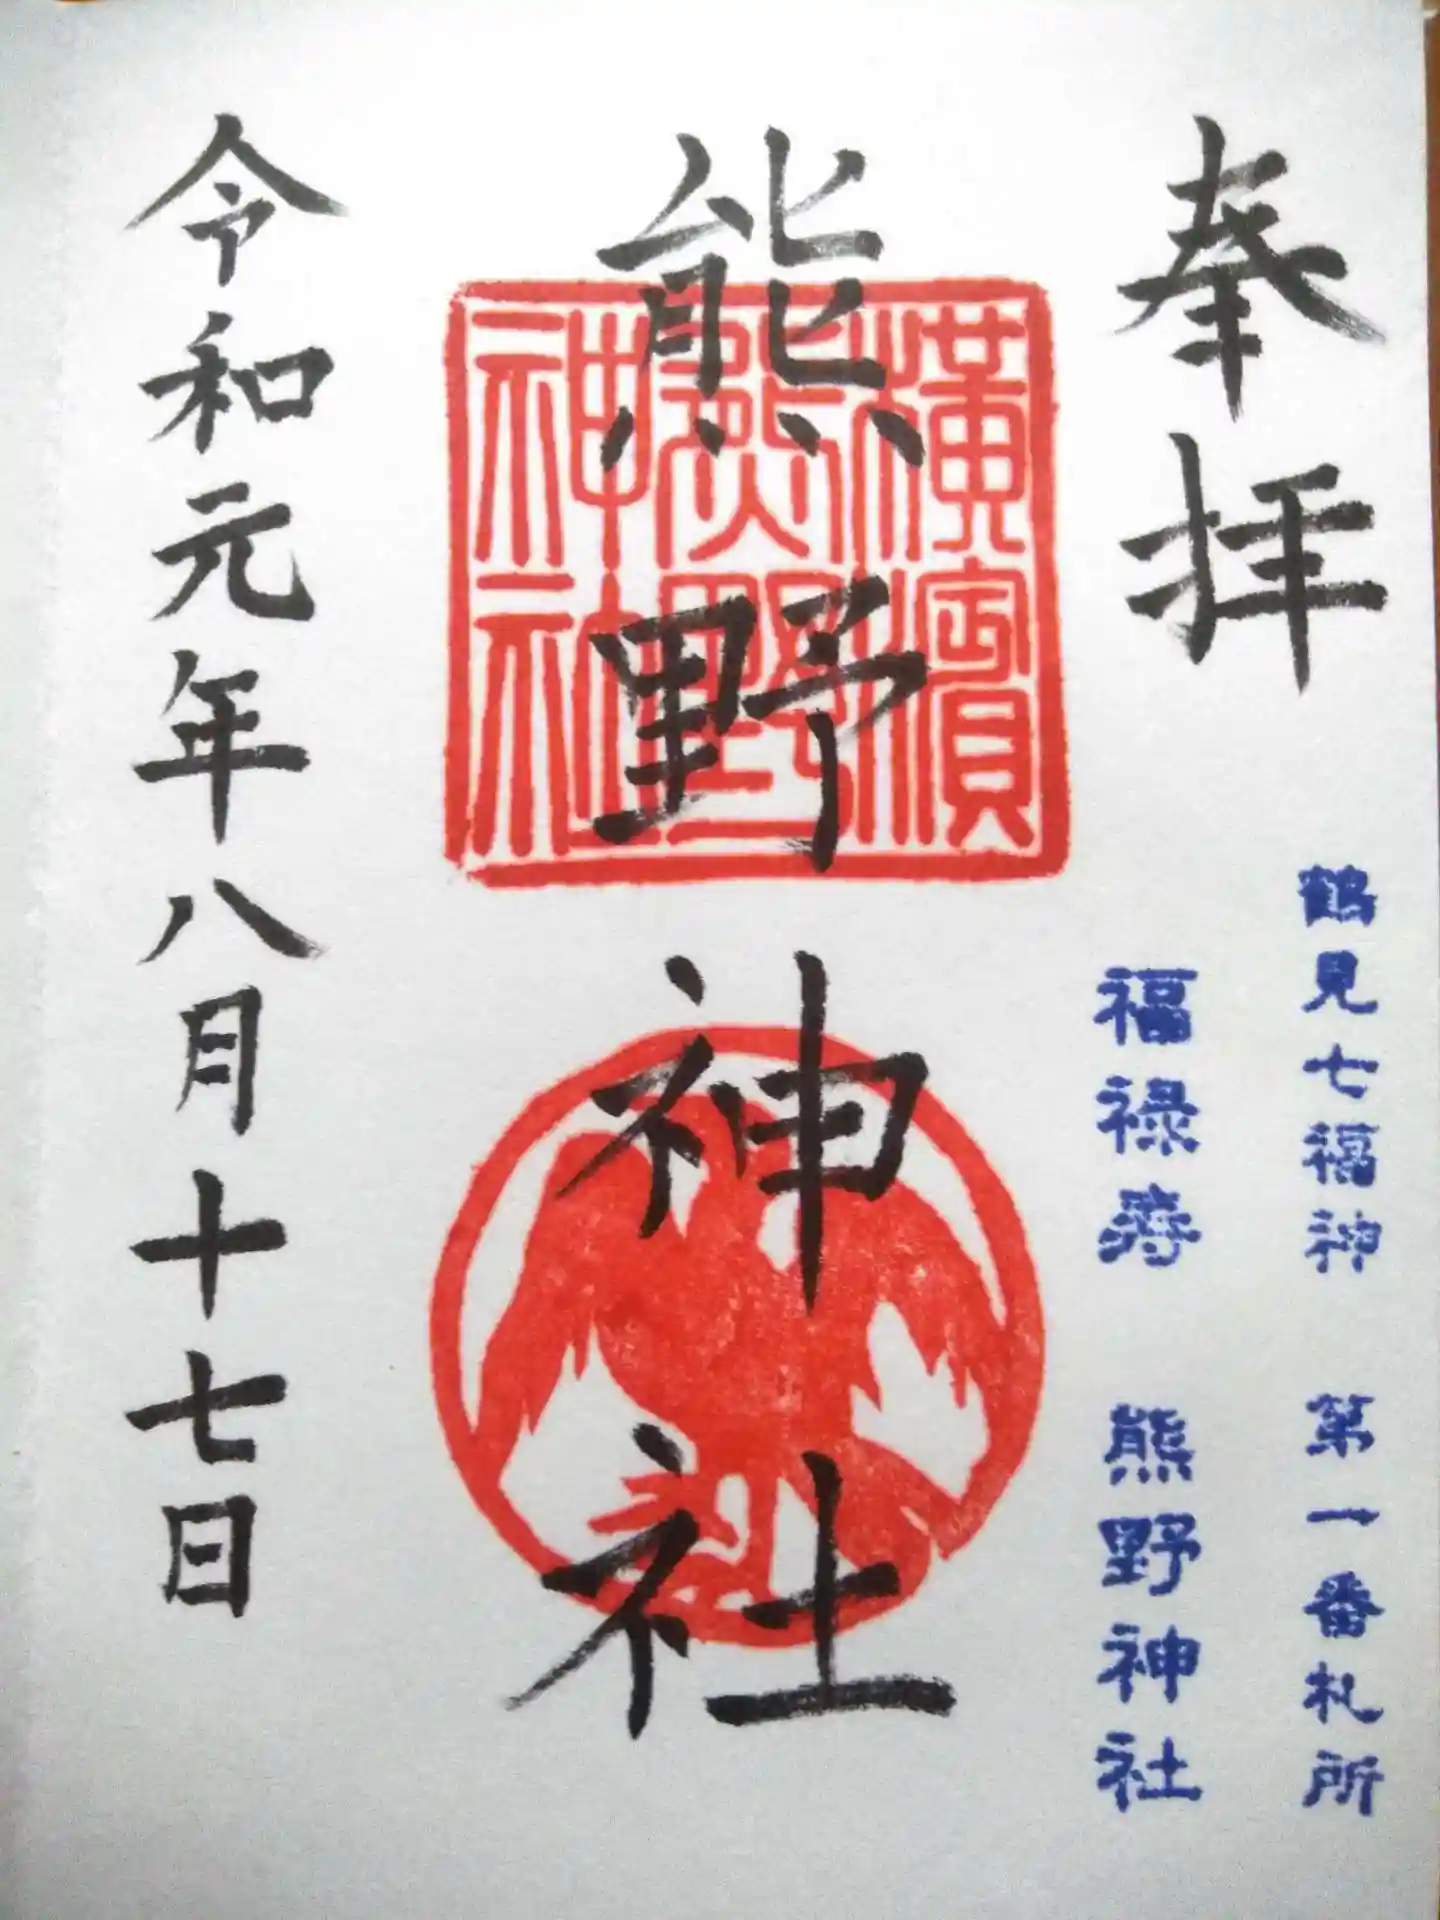 奉拝
鶴見七福神 第一番札所
福禄寿 熊野神社
熊野神社
横濱
熊野
神社
令和元年八月十七日